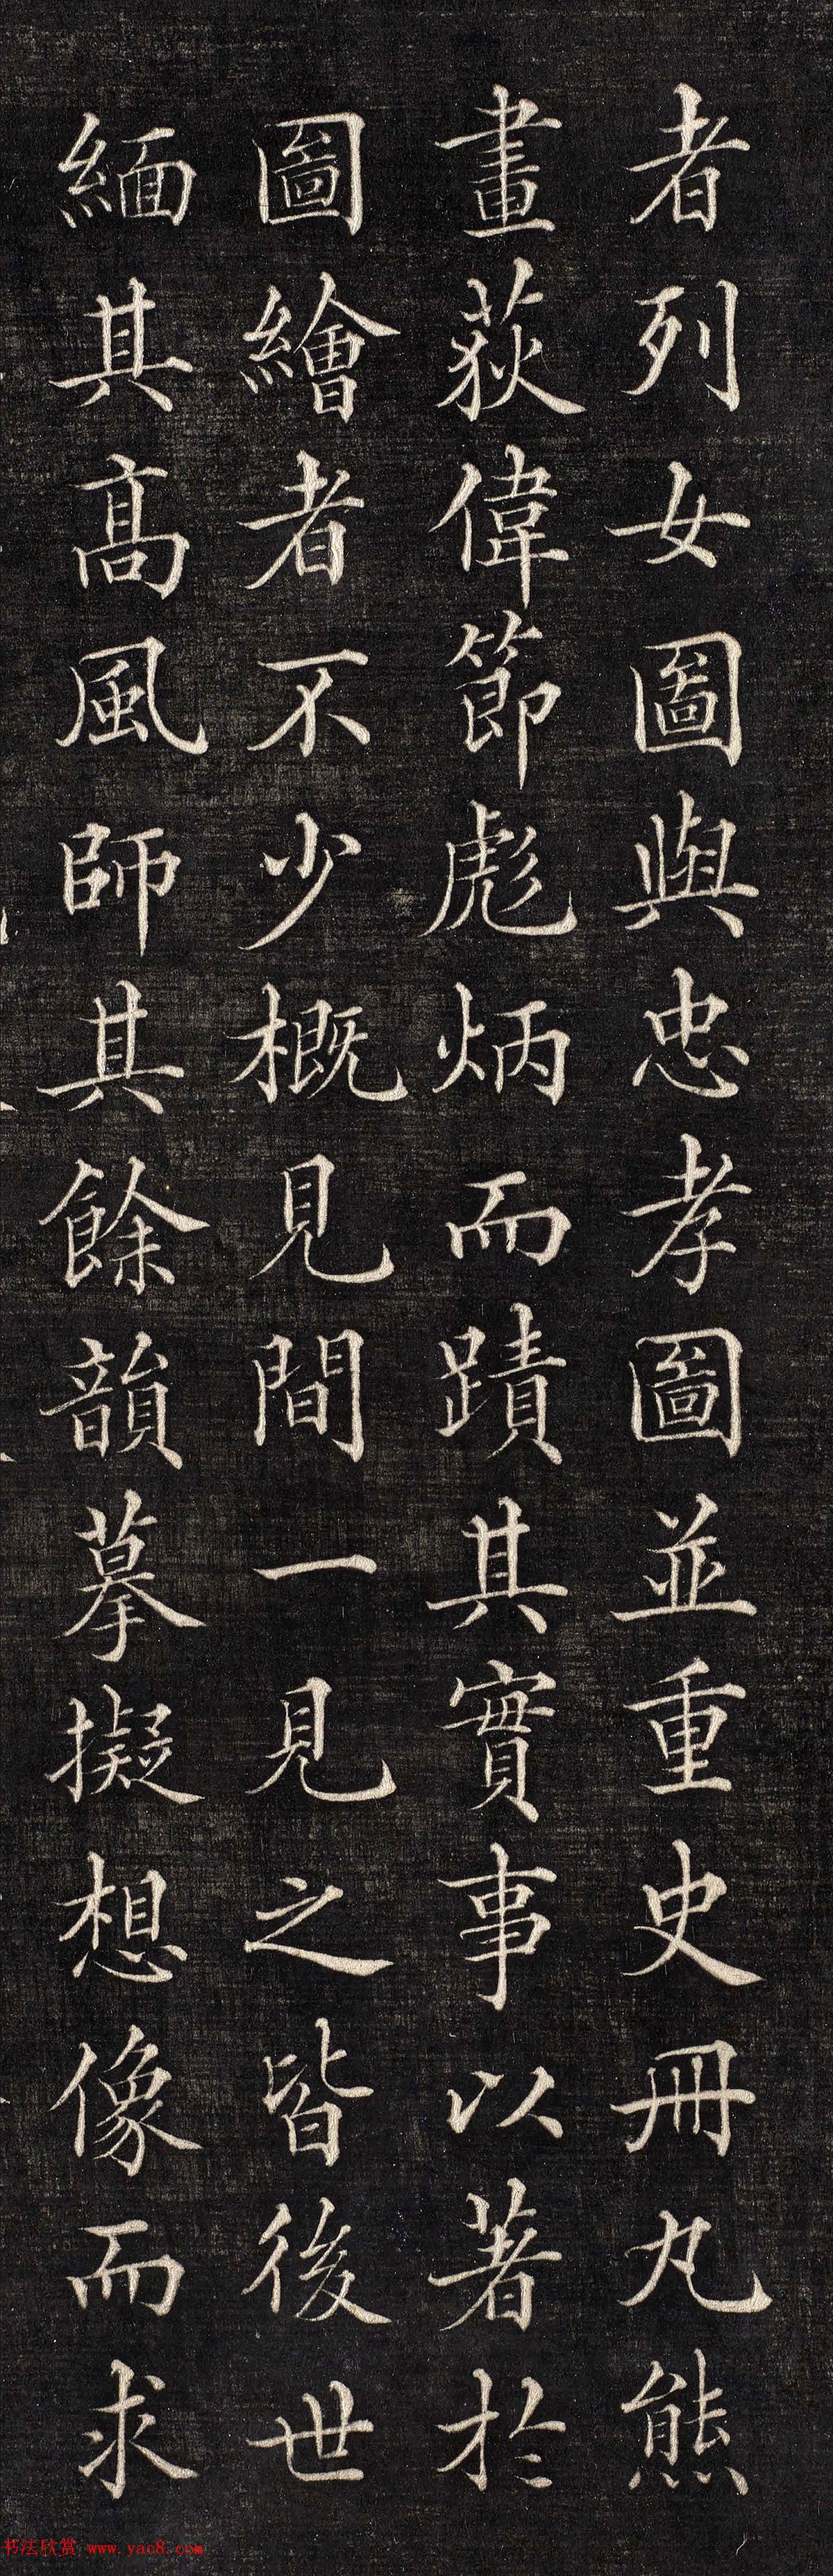 者列女圖與忠孝圖並重史冊丸熊
畫荻偉節彪炳而蹟其實事以著於
圖繪者不少概見間一見之皆後世
緬其髙風師其餘韻摹擬想像而求
书法欣赏 www.yac8.com